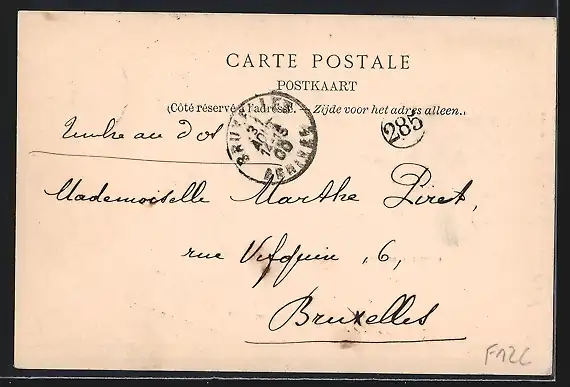 CARTE POSTALE
POSTKAART
(Côté réservé à l'adresse. — Zijde voor het adres alleen.)
BRUXELLES
285
Timbre au dos
Mademoiselle Marthe Piret,
rue Vifquin, 6,
Bruxelles
F12C